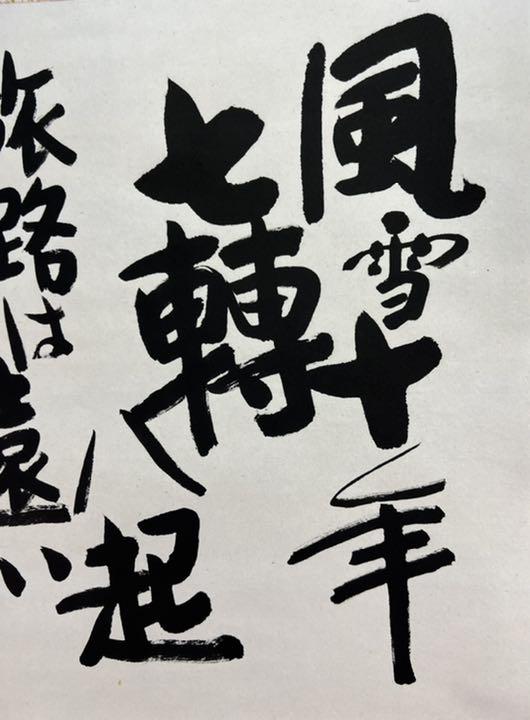 風雪十年
七轉八起
旅路は遠い